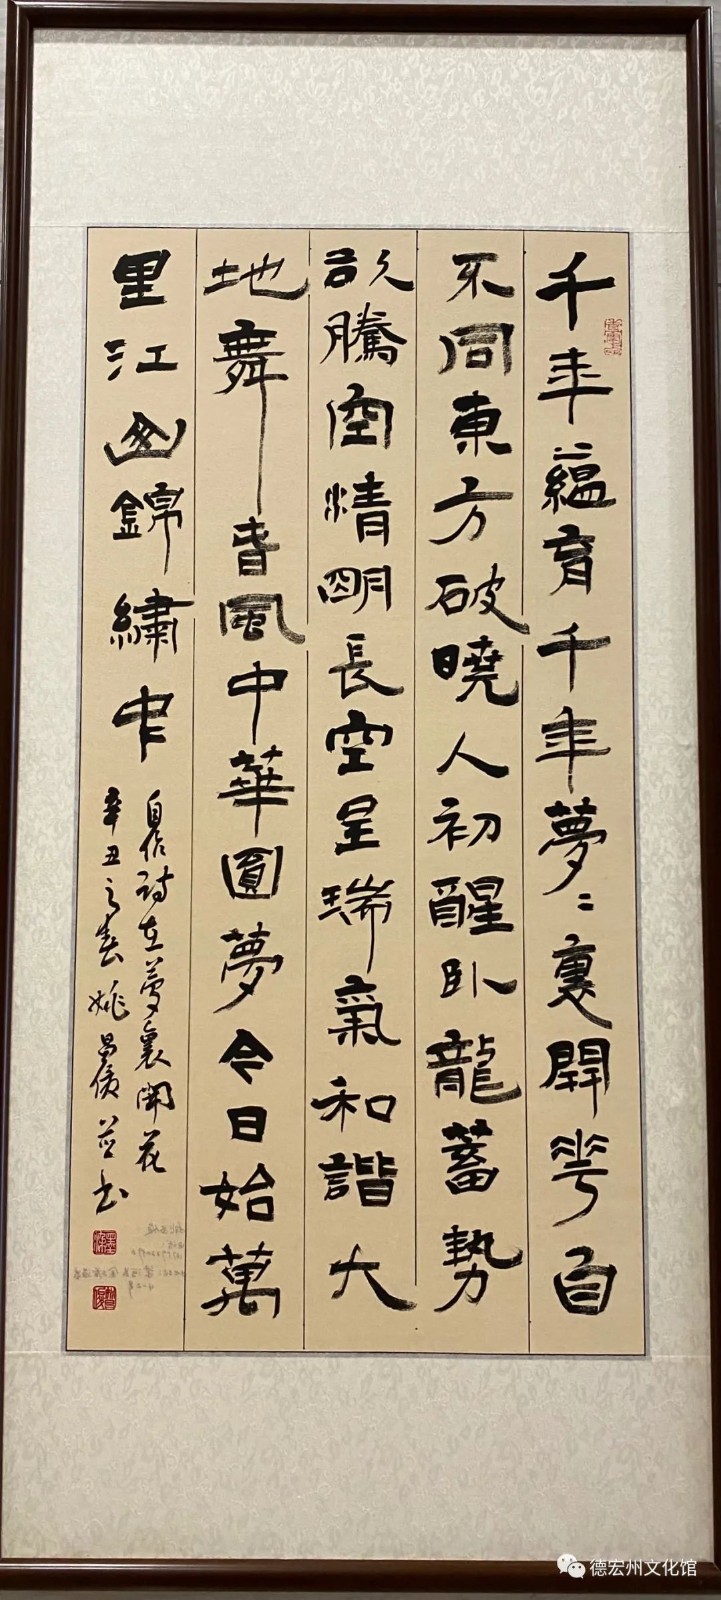 千年蘊育千年夢〻裏開花自
不同東方破曉人初醒卧龍蓄勢
欲騰空清明長空呈瑞氣和諧大
地舞春風中華圓夢今日始萬
里江山錦繡中
自作詩在夢裏開花
辛丑之春姚昌俊并書
德宏州文化馆